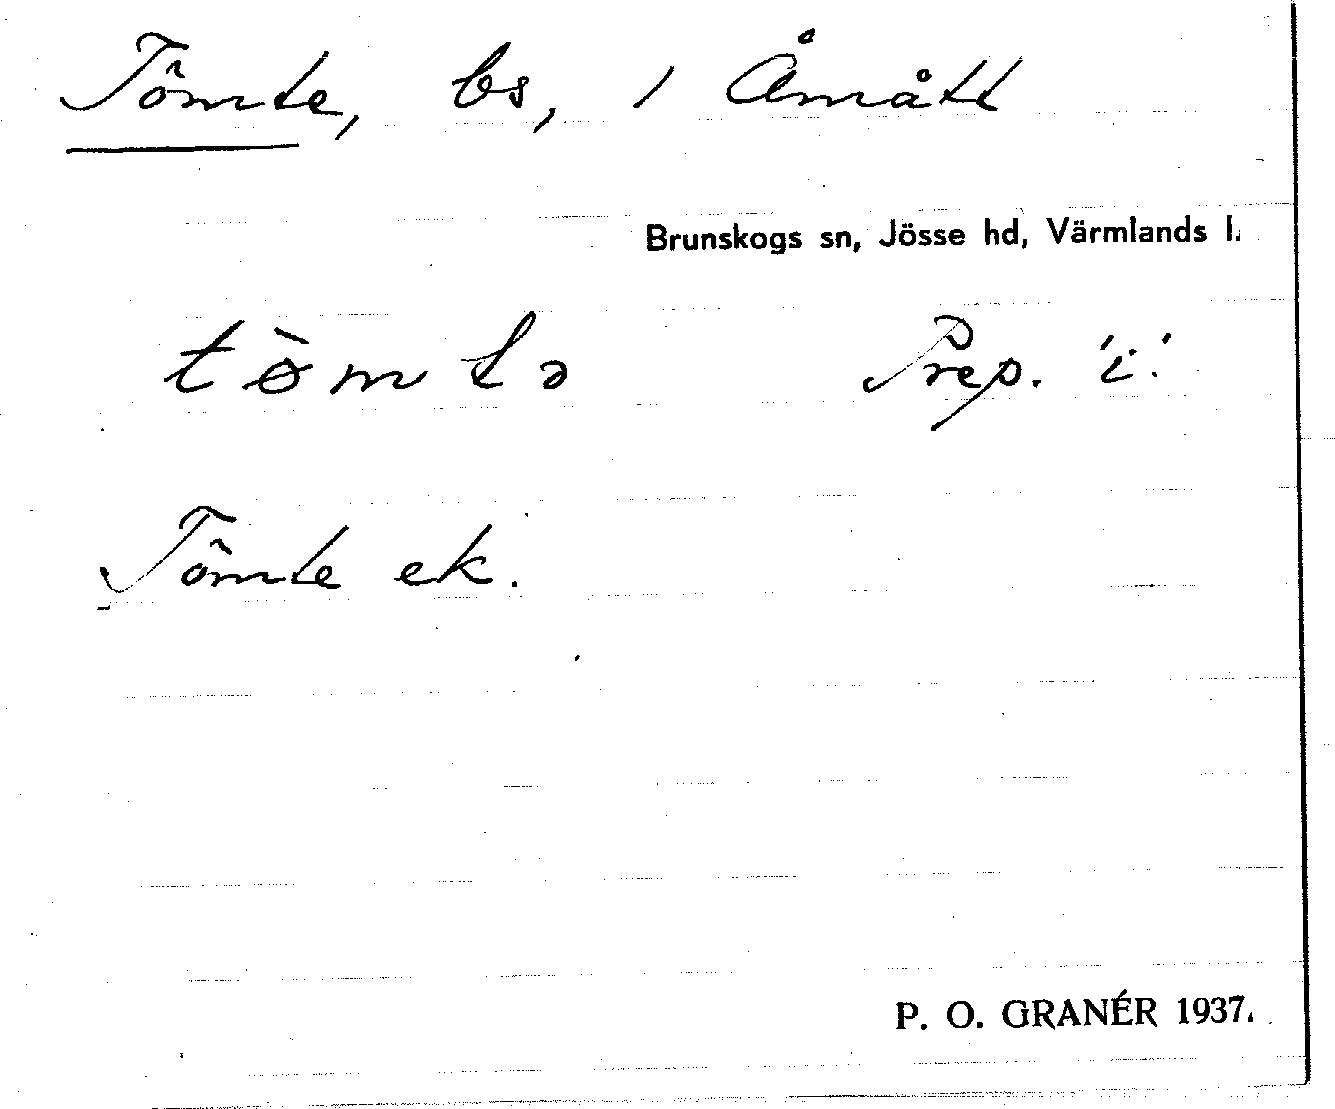 Tômte, bs, / Åmått
Brunskogs sn, Jösse hd, Värmlands l.
tø̀mtə Prep. 'i'.
Tômte ek.
P. O. GRANÉR 1937.